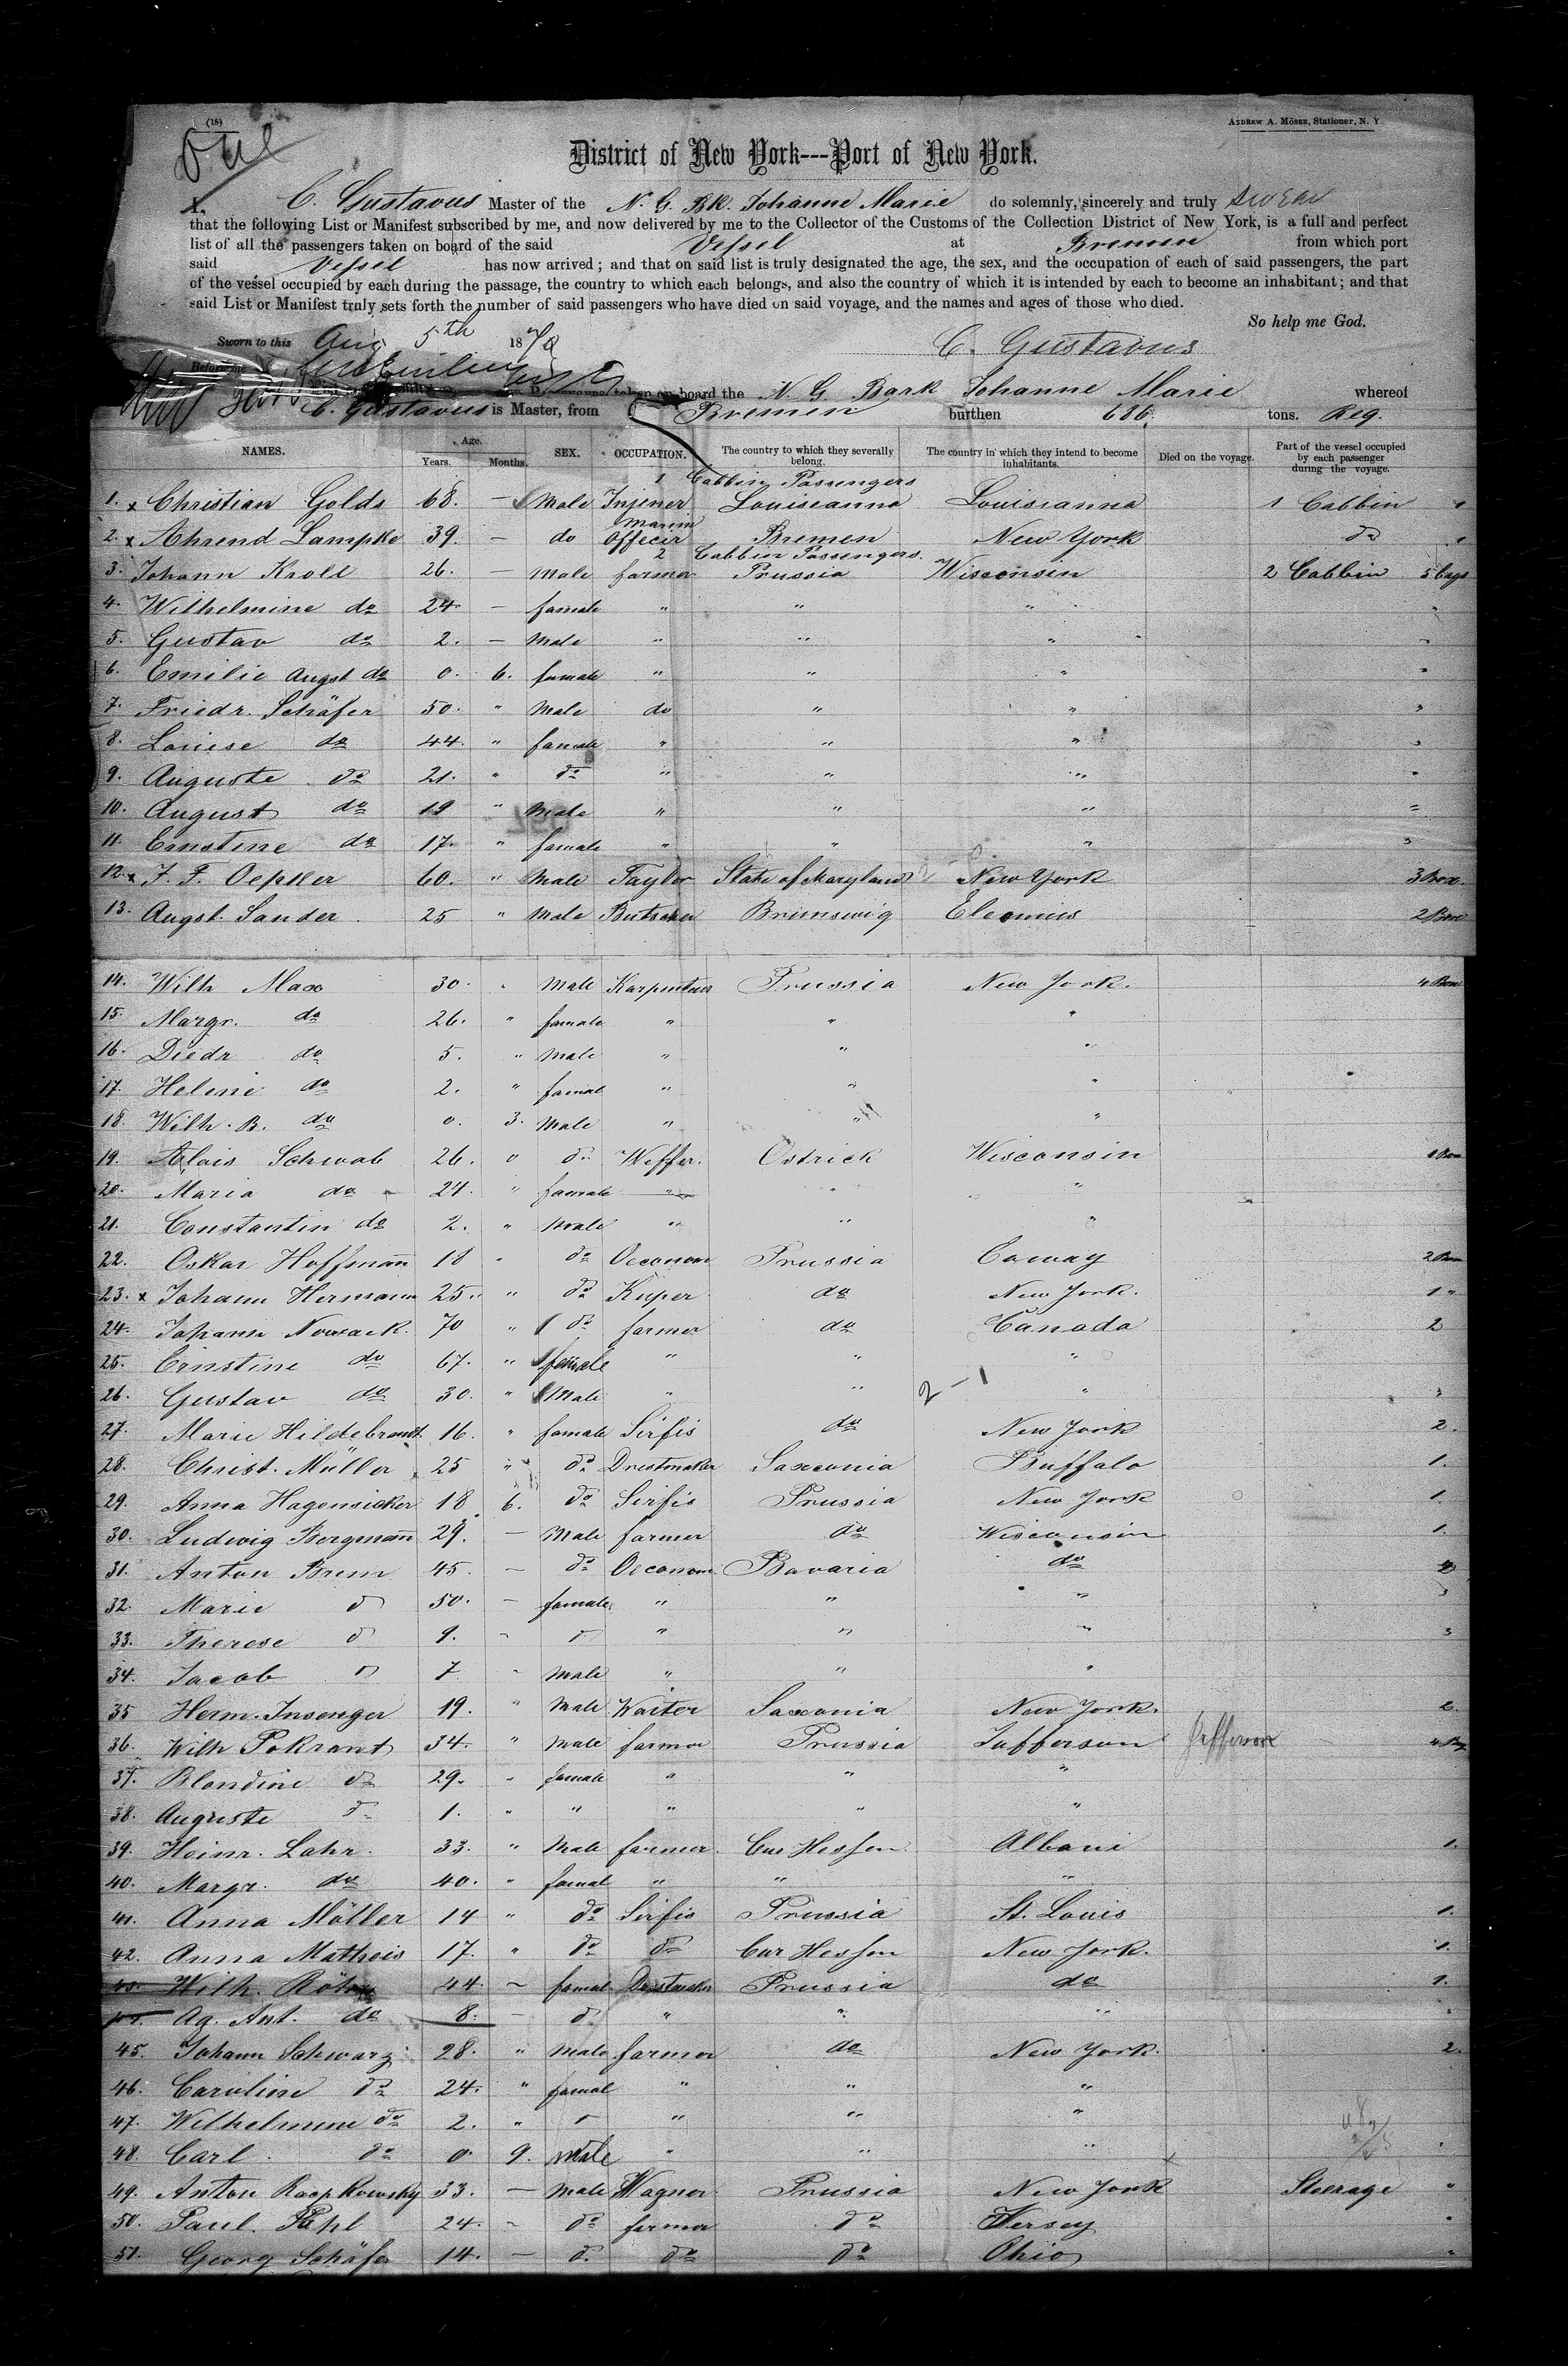 (18)
ANDREW A. MÖSER, Stationer, N. Y.
District of New York---Port of New York.
I, C. Gustavus Master of the N. G. BK. Johanne Marie do solemnly, sincerely and truly swear
that the following List or Manifest subscribed by me, and now delivered by me to the Collector of the Customs of the Collection District of New York, is a full and perfect
list of all the passengers taken on board of the said Vessel at Bremen from which port
said Vessel has now arrived; and that on said list is truly designated the age, the sex, and the occupation of each of said passengers, the part
of the vessel occupied by each during the passage, the country to which each belongs, and also the country of which it is intended by each to become an inhabitant; and that
said List or Manifest truly sets forth the number of said passengers who have died on said voyage, and the names and ages of those who died.
So help me God.
Sworn to this Aug 5th 1870
C. Gustavus
Before me
taken on board the N. G. Bark Johanne Marie whereof
C. Gustavus is Master, from Bremen burthen 686 tons. Reg.
NAMES. Age. Years. Months. SEX. OCCUPATION. The country to which they severally belong. The country in which they intend to become inhabitants. Died on the voyage. Part of the vessel occupied by each passenger during the voyage.
1 Cabbin Passengers
1. x Christian Golds 68. — Male Insener Louiseanna Louisianna 1 Cabbin
2. x Ahrend Lampke 39. — do Marin Officir Bremen New York do
2 Cabbin Passengers.
3. Johann Kroll 26. — Male farmer Prussia Wisconsin 2 Cabbin 5 bags
4. Wilhelmine do 24. — female " " "
5. Gustav do 2. — Male " " "
6. Emilie Augst do 0. 6. female " " "
7. Friedr. Schäfer 50. " Male do " "
8. Louise do 44. " female " " "
9. Auguste do 21. " do " " "
10. August do 19 " Male " " "
11. Ernstine do 17. " female " " "
12. x J. F. Oepker 60. " Male Taylor State of Maryland New York 3 Box.
13. Augst. Sander 25 " Male Butscher Brunswig 2 Box
14. Wilh Max 30. " Male Karpenter Prussia New York. 4 Box
15. Margr. do 26. " female " " "
16. Diedr do 5. " Male " " "
17. Helene do 2. " femal " " "
18. Wilh. B. do 0. 3. Male " " "
19. Alois Schwab 26. " do Weffer. Ostrick Wisconsin 1 Box
20. Maria do 24. " female " " "
21. Constantin do 2. " Male " " "
22. Oskar Hoffmann 18 " do Oeconom Prussia 2 Box
23. x Johann Hermann 25. " do Kuper do New York. 1 "
24. Johann Nowack. 70 " do farmer do Canada 2
25. Ernstine do 67. " female " " "
26. Gustav do 30. " Male " " 2-1 "
27. Marie Hildebrandt 16. " female Sirfis do New York 2.
28. Christ. Müller 25 " do Drestmaker Saxonia Buffalo 1.
29. Anna Hagensicker 18 6. do Sirfis Prussia New York 1.
30. Ludwig Bergmann 29. — Male farmer do Wisconsin 1.
31. Anton Brem 45. — do Oeconom. Bavaria do
32. Marie d 50. — female " " "
33. Therese d 9. " " " "
34. Jacob d 7 " Male " " "
35 Herm. Insenger 19. " Male Waiter Saxonia New York. 2.
36. Wilh Pokrant 34. " Male farmer Prussia Jafferson Jefferson
37. Blondine do 29. " female " " "
38. Auguste do 1. " " " " "
39. Heinr. Lahr. 33. " Male farmer. Cur Hessen. Albani 1.
40. Margr. do 40. " femal " " "
41. Anna Möller 14 " do Sirfis Prussia St. Louis 1.
42. Anna Matheis 17. " do do Cur Hessen New York. 1.
43. Wilh. 44. — femal Prussia do 1.
Ag. Ant. do 8. — d. " " "
45. Johann Schwarz 28. " Male farmer do New York. 2.
46. Caroline do 24. " femal " " "
47. Wilhelmine do 2. " " " "
48. Carl do 0. 9. Male " " "
49. Anton Raczkowsky 33. — Male Wagner Prussia New York Steerage
50. Paul Pahl 24. — do farmer do Jersey
51. Georg Schäfer 14. — d. do do Ohio